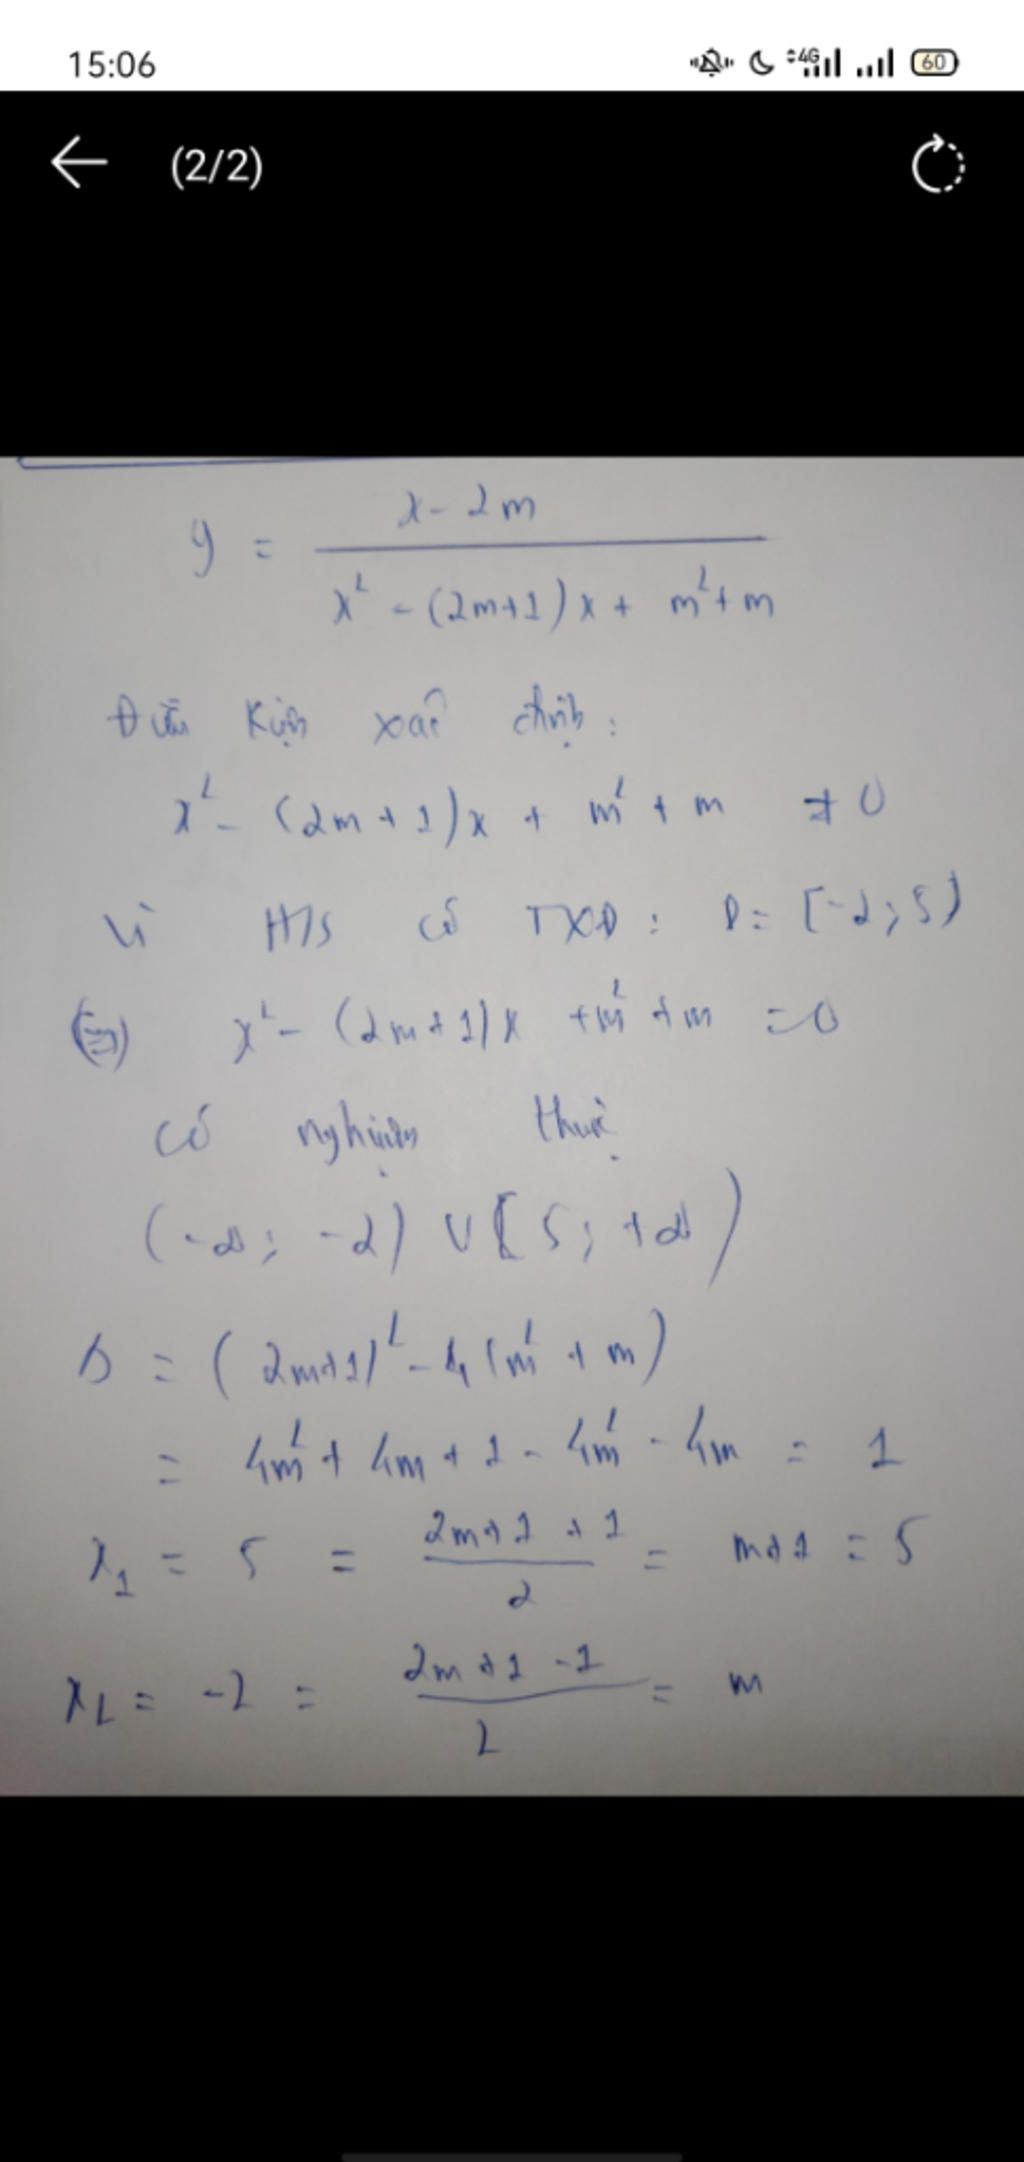 15:06
4G 60
(2/2)
y = \frac{x - 2m}{x² - (2m+1)x + m² + m}
Điều kiện xác định:
x² - (2m + 1)x + m² + m ≠ 0
Vì H/S có TXĐ: D = [-2; 5)
(⇔) x² - (2m + 1)x + m² + m = 0
có nghiệm thực
(-∞; -2) ∪ [5; +∞)
Δ = (2m+1)² - 4(m² + m)
= 4m² + 4m + 1 - 4m² - 4m = 1
x₁ = 5 = \frac{2m+1+1}{2} = m+1 = 5
x₂ = -2 = \frac{2m+1-1}{2} = m